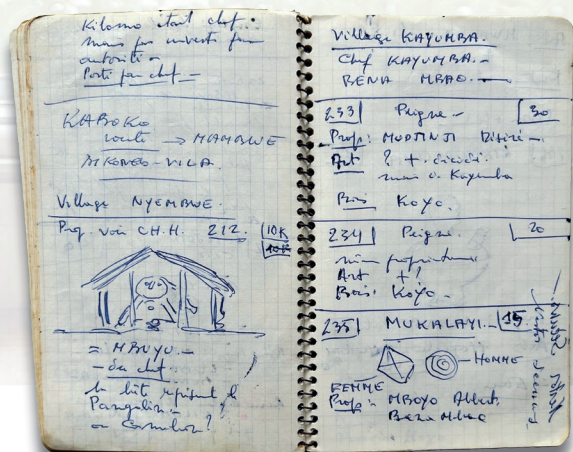 Kilomo étant chef.
mais pas investi par
autorité
Porté par chef.
KABOKO
route → MAMBWE
Village NYEMBWE.
Prop. voir CH.H. 212. 10K
= MBUYU.
- du chef
la bête représente le
Pangolin
ou Caméléon?
Village KAYUMBA.
Chef KAYUMBA.
BENA MBAO.
233 Peigne 30
Prop:
Art ? + décédé.
mari d. Kayumba
Bois Koyo.
234 Peigne. 20
même propriétaire
Art + ?
Bois: Koyo
235 MUKALAYI. 15
HOMME
FEMME
Prop: MBOYO Albert
Bena Mbao